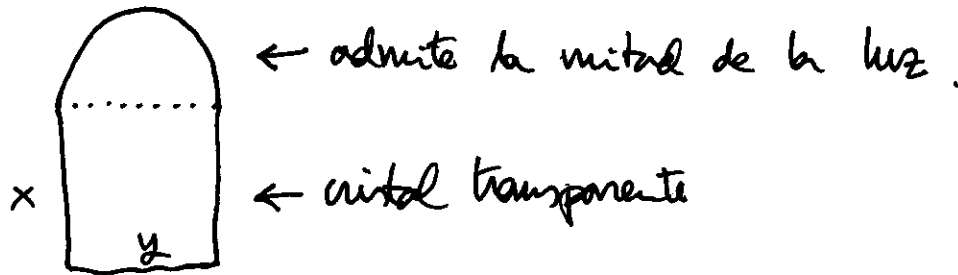 ← admite la mitad de la luz.
x ← cristal transparente
y